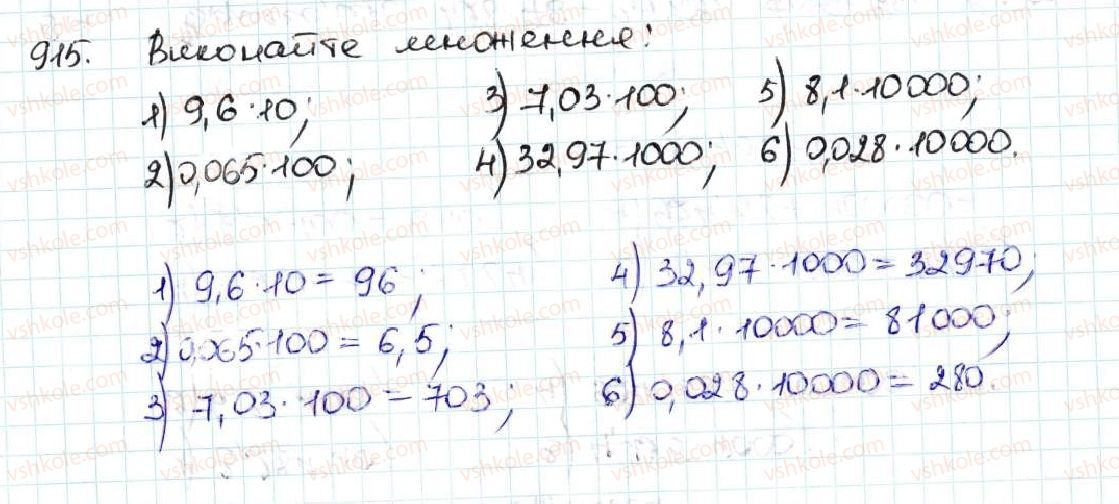 915. Виконайте множення:
1) 9,6·10; 3) 7,03·100; 5) 8,1·10000;
2) 0,065·100; 4) 32,97·1000; 6) 0,028·10000.
1) 9,6·10 = 96; 4) 32,97·1000 = 32970;
2) 0,065·100 = 6,5; 5) 8,1·10000 = 81000;
3) 7,03·100 = 703; 6) 0,028·10000 = 280.
vshkole.com